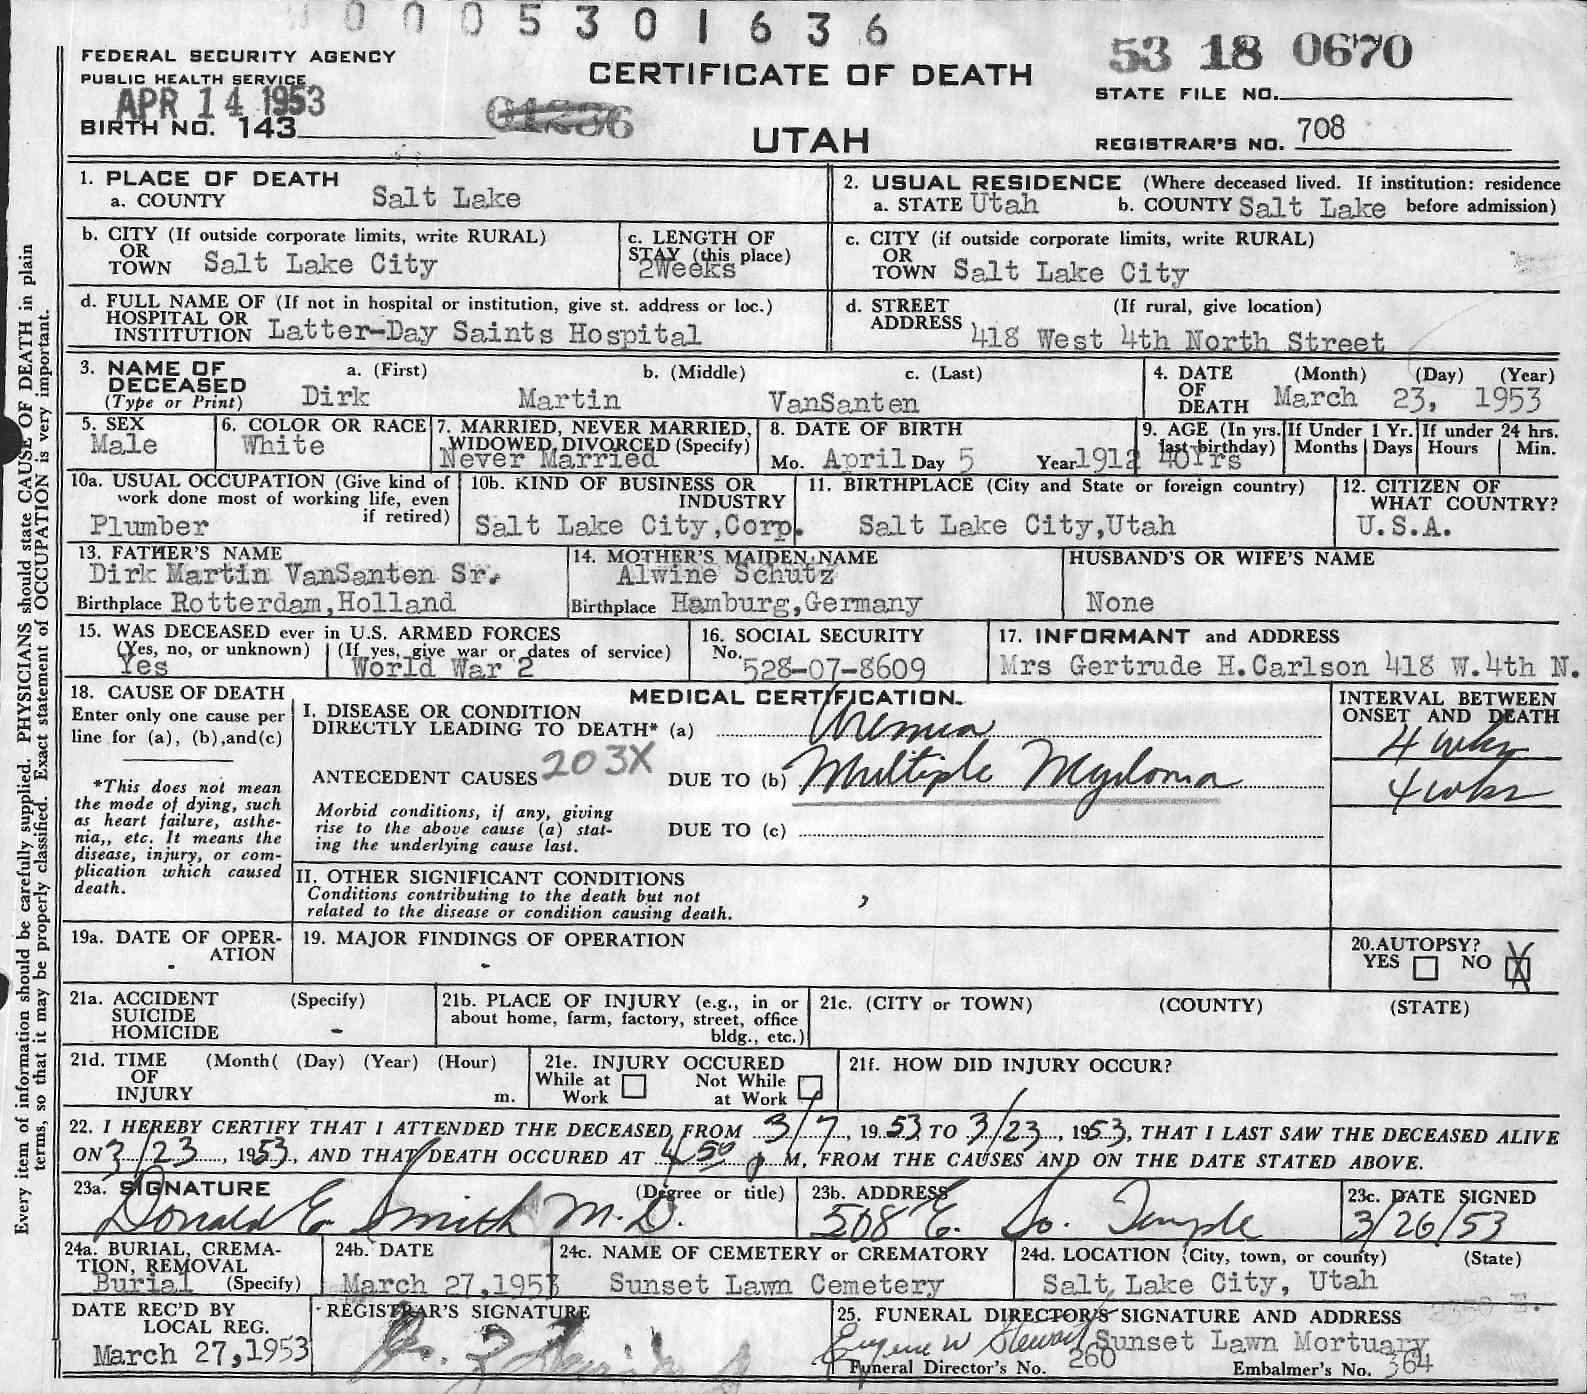 0 0 0 5 3 0 1 6 3 6
53 18 0670
FEDERAL SECURITY AGENCY
PUBLIC HEALTH SERVICE
APR 14 1953
BIRTH NO. 143
CERTIFICATE OF DEATH
UTAH
STATE FILE NO.
REGISTRAR'S NO. 708
Every item of information should be carefully supplied. PHYSICIANS should state CAUSE OF DEATH in plain
terms, so that it may be properly classified. Exact statement of OCCUPATION is very important.
1. PLACE OF DEATH
a. COUNTY Salt Lake
2. USUAL RESIDENCE (Where deceased lived. If institution: residence
a. STATE Utah b. COUNTY Salt Lake before admission)
b. CITY (If outside corporate limits, write RURAL)
OR
TOWN Salt Lake City
c. LENGTH OF
STAY (this place)
2Weeks
c. CITY (if outside corporate limits, write RURAL)
OR
TOWN Salt Lake City
d. FULL NAME OF (If not in hospital or institution, give st. address or loc.)
HOSPITAL OR
INSTITUTION Latter-Day Saints Hospital
d. STREET (If rural, give location)
ADDRESS 418 West 4th North Street
3. NAME OF a. (First) b. (Middle) c. (Last)
DECEASED
(Type or Print) Dirk Martin VanSanten
4. DATE (Month) (Day) (Year)
OF
DEATH March 23, 1953
5. SEX
Male
6. COLOR OR RACE
White
7. MARRIED, NEVER MARRIED,
WIDOWED, DIVORCED (Specify)
Never Married
8. DATE OF BIRTH
Mo. April Day 5 Year 1912
9. AGE (In yrs.
last birthday)
40Yrs
If Under 1 Yr.
Months Days
If under 24 hrs.
Hours Min.
10a. USUAL OCCUPATION (Give kind of
work done most of working life, even
if retired)
Plumber
10b. KIND OF BUSINESS OR
INDUSTRY
Salt Lake City,Corp.
11. BIRTHPLACE (City and State or foreign country)
Salt Lake City,Utah
12. CITIZEN OF
WHAT COUNTRY?
U.S.A.
13. FATHER'S NAME
Dirk Martin VanSanten Sr.
Birthplace Rotterdam,Holland
14. MOTHER'S MAIDEN NAME
Alwine Schutz
Birthplace Hamburg,Germany
HUSBAND'S OR WIFE'S NAME
None
15. WAS DECEASED ever in U.S. ARMED FORCES
(Yes, no, or unknown) (If yes, give war or dates of service)
Yes World War 2
16. SOCIAL SECURITY
No.
528-07-8609
17. INFORMANT and ADDRESS
Mrs Gertrude H.Carlson 418 W.4th N.
18. CAUSE OF DEATH
Enter only one cause per
line for (a), (b),and(c)
*This does not mean
the mode of dying, such
as heart failure, asthe-
nia,, etc. It means the
disease, injury, or com-
plication which caused
death.
MEDICAL CERTIFICATION.
I. DISEASE OR CONDITION
DIRECTLY LEADING TO DEATH* (a) Uremia
ANTECEDENT CAUSES 203X DUE TO (b) Multiple Myeloma
Morbid conditions, if any, giving
rise to the above cause (a) stat-
ing the underlying cause last.
DUE TO (c)
INTERVAL BETWEEN
ONSET AND DEATH
4 wks
4 wks
II. OTHER SIGNIFICANT CONDITIONS
Conditions contributing to the death but not
related to the disease or condition causing death.
19a. DATE OF OPER-
ATION
-
19. MAJOR FINDINGS OF OPERATION
-
20.AUTOPSY?
YES NO X
21a. ACCIDENT (Specify)
SUICIDE
HOMICIDE -
21b. PLACE OF INJURY (e.g., in or
about home, farm, factory, street, office
bldg., etc.)
21c. (CITY or TOWN) (COUNTY) (STATE)
21d. TIME (Month( (Day) (Year) (Hour)
OF
INJURY m.
21e. INJURY OCCURED
While at Not While
Work at Work
21f. HOW DID INJURY OCCUR?
22. I HEREBY CERTIFY THAT I ATTENDED THE DECEASED FROM 3/7, 1953, TO 3/23, 1953, THAT I LAST SAW THE DECEASED ALIVE
ON 3/23, 1953, AND THAT DEATH OCCURED AT 4:50 p M, FROM THE CAUSES AND ON THE DATE STATED ABOVE.
23a. SIGNATURE (Degree or title)
Donald E. Smith M.D.
23b. ADDRESS
508 E. So. Temple
23c. DATE SIGNED
3/26/53
24a. BURIAL, CREMA-
TION, REMOVAL
Burial (Specify)
24b. DATE
March 27,1953
24c. NAME OF CEMETERY or CREMATORY
Sunset Lawn Cemetery
24d. LOCATION (City, town, or county) (State)
Salt Lake City, Utah
DATE REC'D BY
LOCAL REG.
March 27,1953
REGISTRAR'S SIGNATURE
25. FUNERAL DIRECTOR'S SIGNATURE AND ADDRESS
Eugene W Stewart Sunset Lawn Mortuary
Funeral Director's No. 260 Embalmer's No. 364